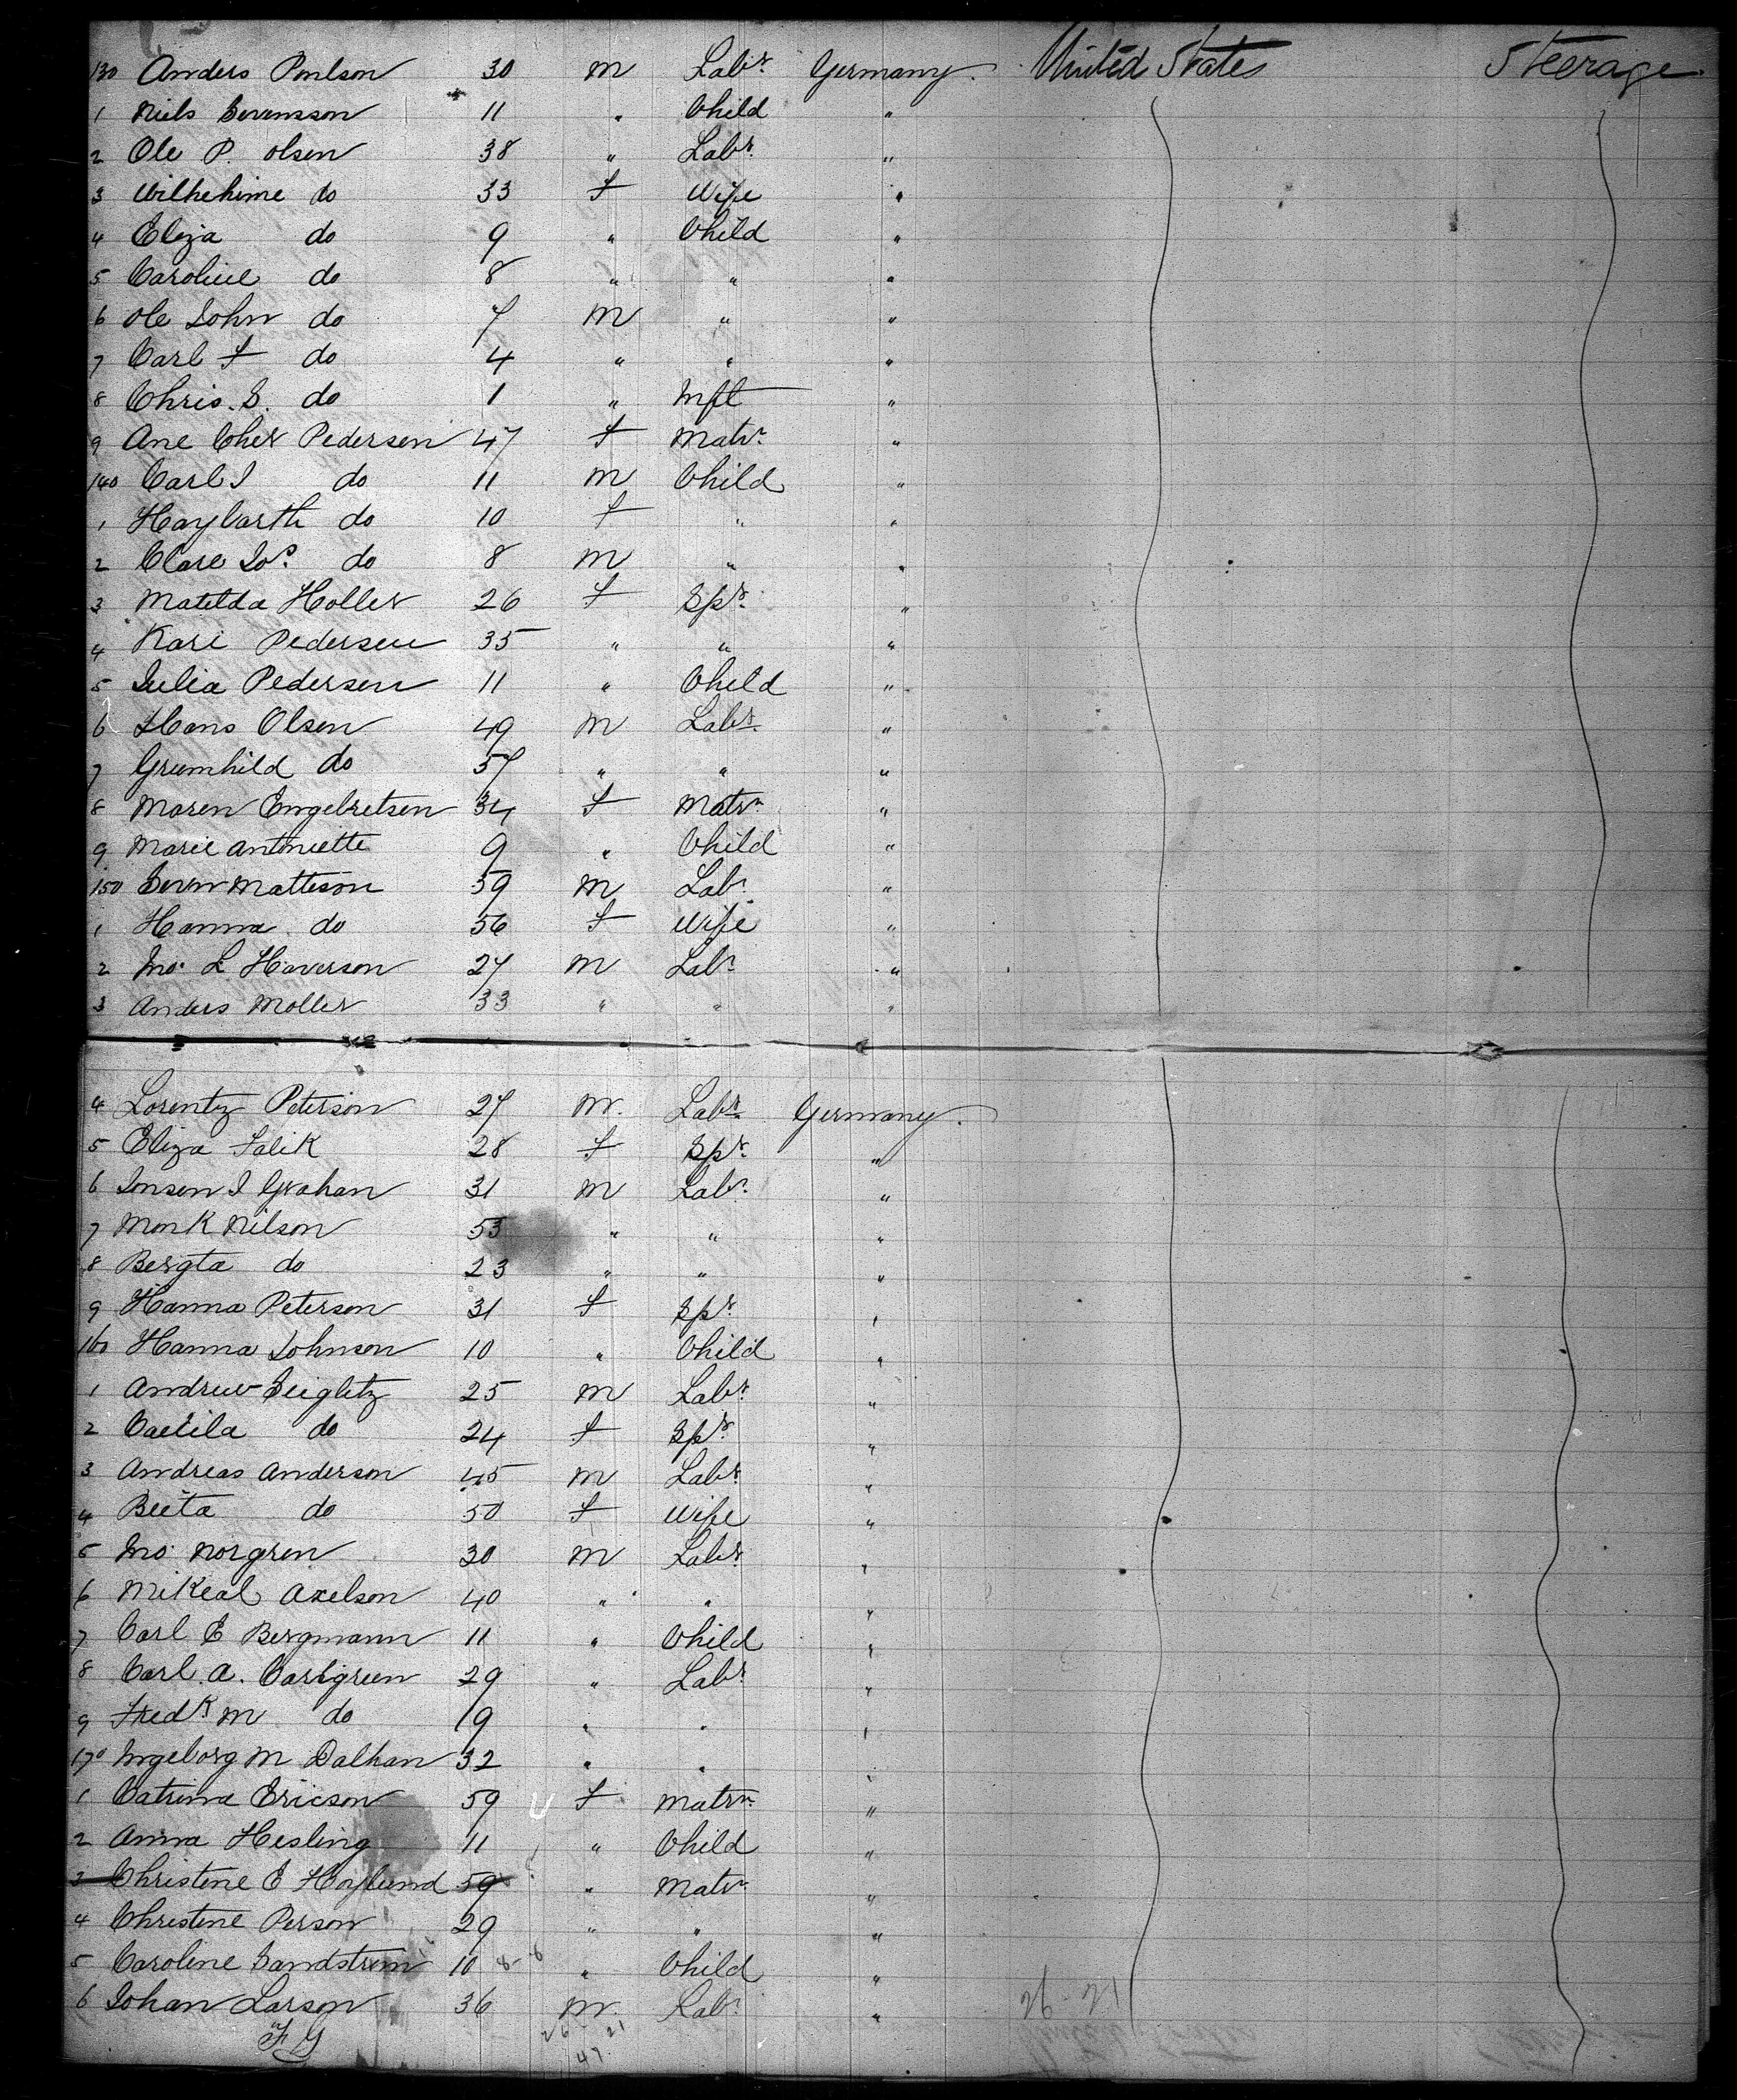 130 Anders Poulson 30 m Labr. Germany. United States Steerage.
1 Niels Sorensson 11 " Child "
2 Ole P. Olsen 38 " Labr. "
3 Wilhelmine do 33 f Wife "
4 Eliza do 9 " Child "
5 Caroline do 8 " " "
6 Ole John do 7 m " "
7 Carl F do 4 " " "
8 Chris. S. do 1 " Inft "
9 Ane Chr Pedersen 47 f Matrn. "
140 Carl J do 11 m Child "
1 Haybarth do 10 f " "
2 Clare Jos. do 8 m " "
3 Matilda Holler 26 f Spr. "
4 Kari Pedersen 35 " " "
5 Julia Pedersen 11 " Child "
6 Hans Olsen 49 m Labr. "
7 Grumhild do 57 " " "
8 Maren Engelretsen 34 f Matrn. "
9 Marie Antoniette 9 " Child "
150 Soren Matteson 59 m Labr "
1 Hanna do 56 f Wife "
2 Jno. L. Haverson 27 m Labr. "
3 Anders Moller 33 " " "
4 Lorentz Peterson 27 m. Labr. Germany.
5 Eliza Falik 28 f Spr. "
6 Jonsen J Grahan 31 m Labr. "
7 Monk Nilson 53 " " "
8 Bergta do 23 " " "
9 Hanna Peterson 31 f Spr. "
160 Hanna Johnson 10 " Child "
1 Andrew Seigletz 25 m Labr. "
2 Caecila do 24 f Spr. "
3 Andreas Anderson 45 m Labr. "
4 Beeta do 50 f Wife "
5 Jno. Norgren 30 m Labr. "
6 Mikeal Axelson 40 " " "
7 Carl E Bergmann 11 " Child "
8 Carl. A. Carlgreen 29 " Labr "
9 Fredk. M do 19 " " "
170 Ingeborg M Dalhan 32 " " "
1 Catrina Ericson 59 f Matrn. "
2 Anna Hesling 11 " Child "
3 Christine E Hoglund 59 " Matrn "
4 Christine Person 29 " " "
5 Caroline Sandstrom 10 8-8 " Child "
6 Johan Larson 36 m. Labr. " 26-21
F G 26 21
47